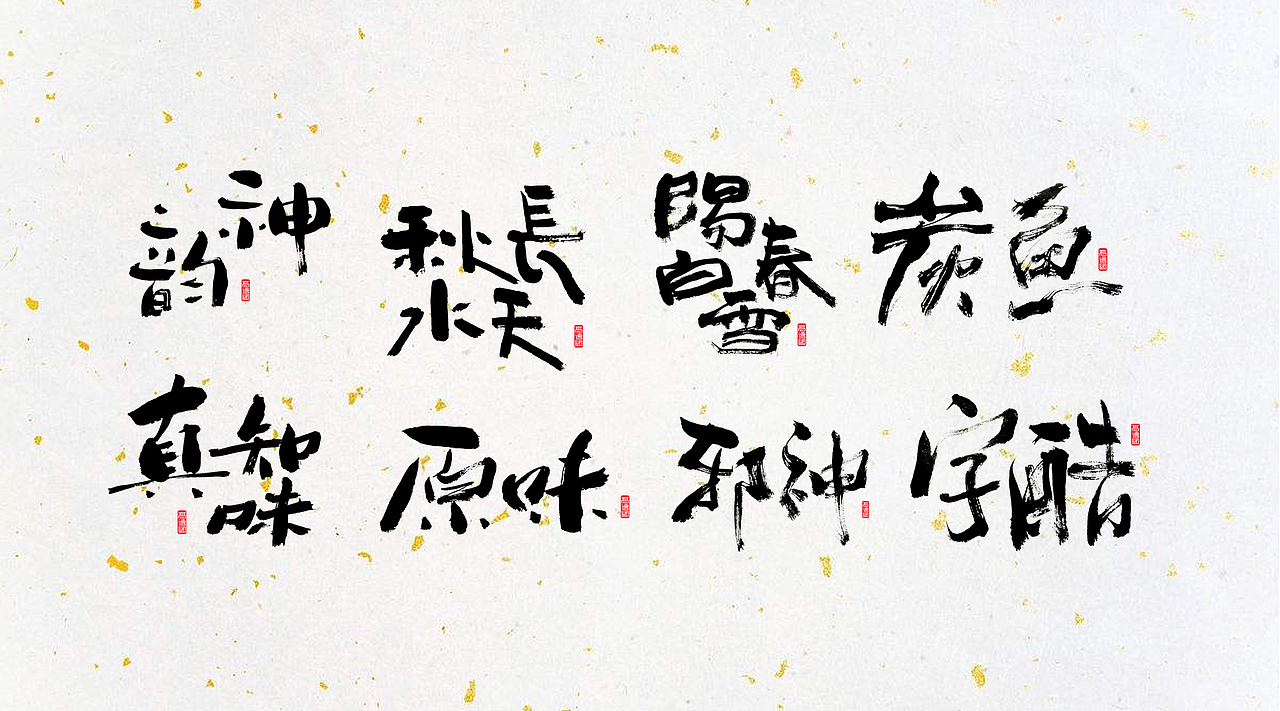 神韵
秋水長天
陽春白雪
炭魚
真知味
原味
邪神
字酷